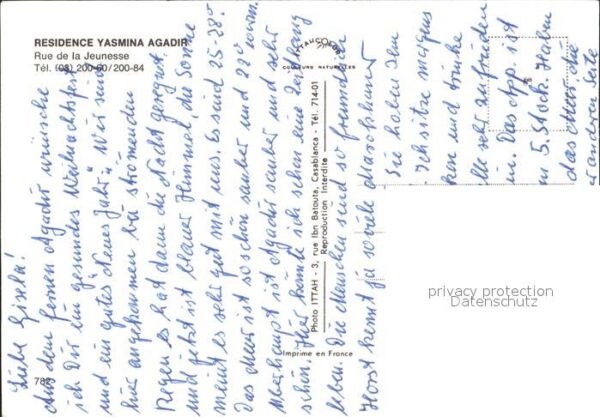 RESIDENCE YASMINA AGADIR
Rue de la Jeunesse
Tél. (08) 200-60/200-84
ITTAHCOLOR
COULEURS NATURELLES
Photo ITTAH - 3, rue Ibn Batouta, Casablanca - Tél. 714-01
Reproduction Interdite
Imprimé en France
782
Liebe Gisela!
Aus dem fernen Agadir wünsche
ich Dir ein gesundes Weihnachtsfest
und ein gutes "Neues Jahr". Wir sind
hier angekommen bei strömenden
Regen es hat dann die Nacht geregnet
und jetzt ist blauer Himmel, die Sonne
meint es sehr gut mit uns. Es sind 25-28°
Das Meer ist so schön sauber und 22° warm.
Überhaupt ist Agadir sauber und sehr
schön. Hier könnte ich schon eine Zeitlang
leben. Die Menschen sind so freundlich
Horst kennt ja so viele Marokkaner
Sie holen dem
Ich sitze
und trinke
sehr zufrieden
Das App. ist
5. Stock. Haben
das Meer die
andere Seite
privacy protection
Datenschutz